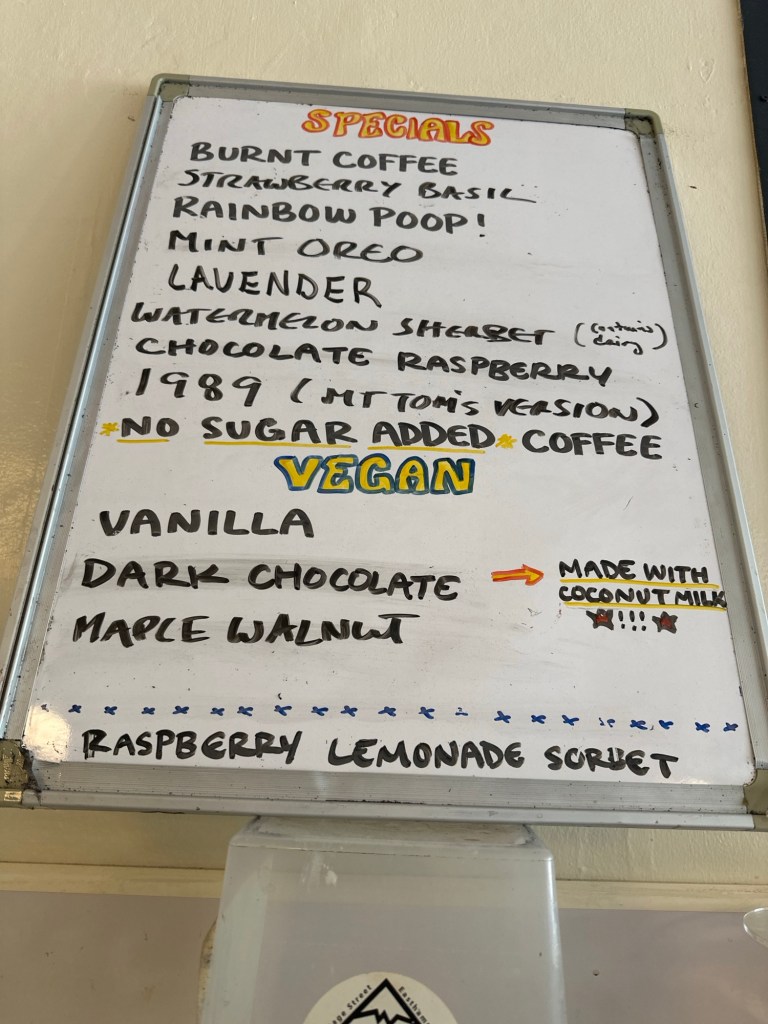 SPECIALS
BURNT COFFEE
STRAWBERRY BASIL
RAINBOW POOP!
MINT OREO
LAVENDER
WATERMELON SHERBET (contains dairy)
CHOCOLATE RASPBERRY
1989 (MT TOM'S VERSION)
*NO SUGAR ADDED* COFFEE
VEGAN
VANILLA
DARK CHOCOLATE → MADE WITH
COCONUT MILK
★!!!★
MAPLE WALNUT
RASPBERRY LEMONADE SORBET